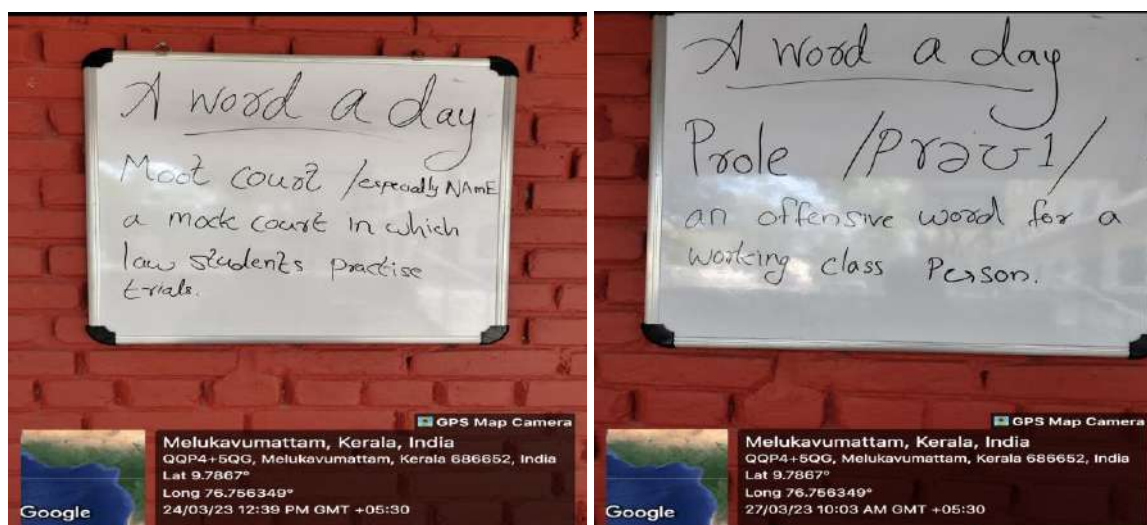 A word a day
Moot court /especially NAmE
a mock court in which
law students practise
trials.
GPS Map Camera
Melukavumattam, Kerala, India
QQP4+5QG, Melukavumattam, Kerala 686652, India
Lat 9.7867°
Long 76.756349°
24/03/23 12:39 PM GMT +05:30
Google
A word a day
Prole /prəʊl/
an offensive word for a
working class Person.
GPS Map Camera
Melukavumattam, Kerala, India
QQP4+5QG, Melukavumattam, Kerala 686652, India
Lat 9.7867°
Long 76.756349°
27/03/23 10:03 AM GMT +05:30
Google